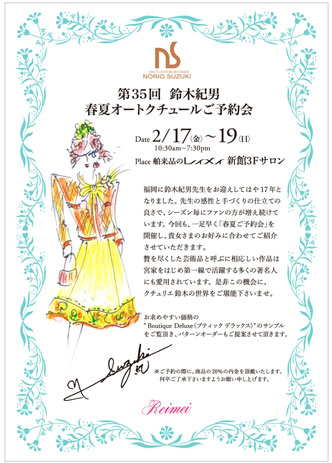 NS
HAUTE COUTURE BOUTIQUE
NORIO SUZUKI
第35回 鈴木紀男
春夏オートクチュールご予約会
Date 2/17(金)〜19(日)
10:30am〜7:30pm
Place 舶来品のレイメイ 新館3Fサロン
福岡に鈴木紀男先生をお迎えしてはや17年と
なりました。先生の感性と手づくりの仕立ての
良さで、シーズン毎にファンの方が増え続けて
います。今回も、一足早く「春夏ご予約会」を
開催し、貴女さまのお好みに合わせてご紹介
させていただきます。
贅を尽くした芸術品と呼ぶに相応しい作品は
宮家をはじめ第一線で活躍する多くの著名人
にも愛用されています。是非この機会に、
クチュリエ鈴木の世界をご堪能下さいませ。
お求めやすい価格の
"Boutique Deluxe(ブティック デラックス)"のサンプル
をご覧頂き、パターンオーダーもご提案させて頂きます。
※ご予約の際に、商品の20%の内金を頂戴いたします。
何卒ご了承下さいますようお願い申し上げます。
Suzuki
Reimei